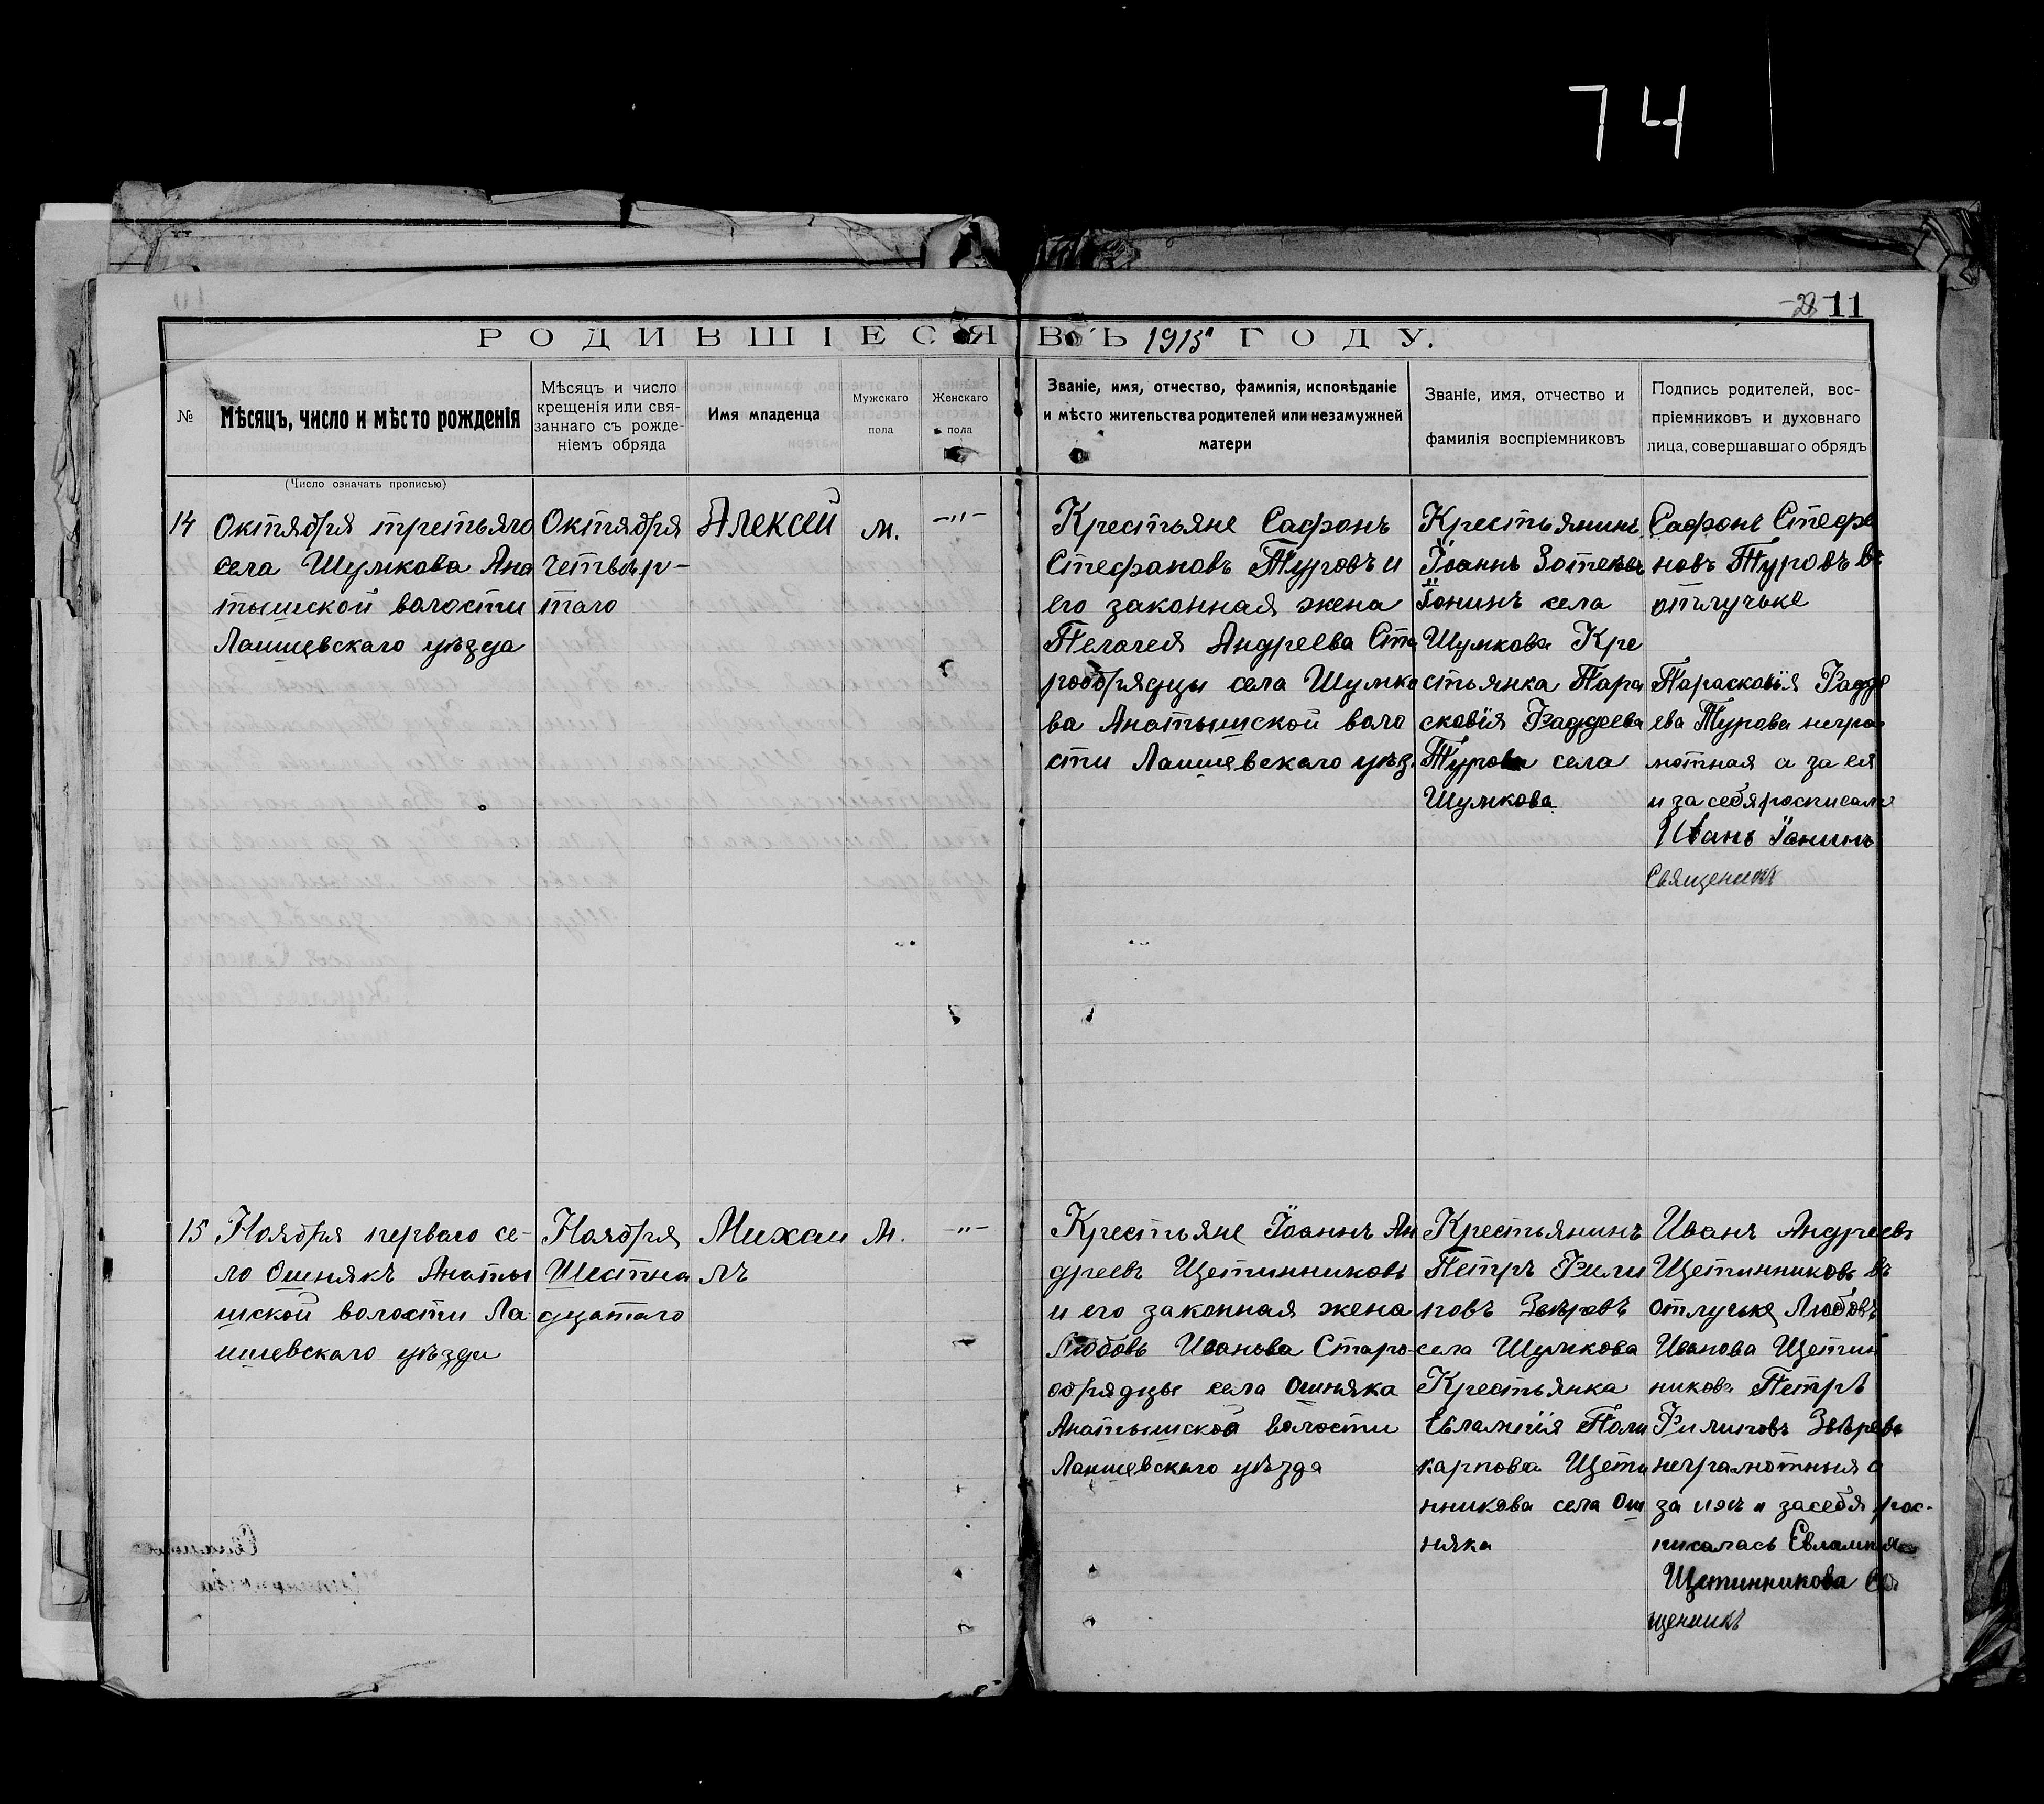 74
28 11
РОДИВШІЕСЯ ВЪ 1915 ГОДУ.
№
Мѣсяцъ, число и мѣсто рожденія
Мѣсяцъ и число
крещенія или свя-
заннаго съ рожде-
ніемъ обряда
Имя младенца
Мужскаго
пола
Женскаго
пола
Званіе, имя, отчество, фамилія, исповѣданіе
и мѣсто жительства родителей или незамужней
матери
Званіе, имя, отчество и
фамилія воспріемниковъ
Подпись родителей, вос-
пріемниковъ и духовнаго
лица, совершавшаго обрядъ
(Число означать прописью)
14
Октября третьяго
села Шумкова Ана
тышской волости
Лаишевскаго уѣзда
Октября
четвьр-
таго
Алексей
м.
-"-
Крестьяне Сафонъ
Стефановъ Туровъ и
его законная жена
Пелагея Андреева Ста
рообрядцы села Шумко
ва Анатышской воло
сти Лаишевскаго уѣзд.
Крестьянинъ
Іоаннъ
Іонинъ села
Шумкова Кре
стьянка Пара
сковія Фаддеева
Турова села
Шумкова
Сафонъ Стефа
новъ Туровъ въ
отлучьке
Парасковія Фадде
ева Турова негра
мотная а за ея
и за себя росписался
Иванъ Іонинъ
Священикъ
15
Ноября перваго се-
ло Ошнякъ Анаты
шской волости Ла
ишевскаго уѣзда
Ноября
Шестна
дцатаго
Михаи
лъ
М.
-"-
Крестьяне Іоаннъ Ан
дреевъ Щетинниковъ
и его законная жена
Любовь Иванова Старо-
обрядцы села Ошняка
Анатышской волости
Лаишевскаго уѣзда
Крестьянинъ
Петръ Фили
повъ Звѣревъ
села Шумкова
Крестьянка
Евлампія Поли
карпова Щети
нникова села Ош
няка
Иванъ Андреевъ
Щетинниковъ въ
отлучьке Любовь
Иванова Щетин
никова Петръ
Филиповъ Звѣревъ
неграмотныя а
за ихъ и засебя рос-
писалась Евлампия
Щетинникова Свя
щеникъ